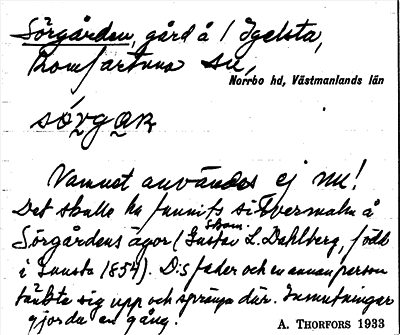 Sörgården, gård å / Igelsta,
Romfartuna sn,
Norrbo hd, Västmanlands län
Namnet användes ej nu!
Det skulle ha funnits silvermalm å
Sörgårdens ägor (Gustav L. Dahlberg, född
i 1854). D:s fader och en annan person
tänkte sig upp och spränga där. Inmutningar
gjordes en gång.
A. THORFORS 1933